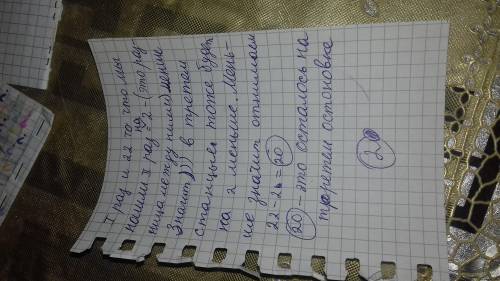 I раз и 22 то что мы
нашли I раз на = 2 (это раз
ница между ними) менше
значит))) в третем
станцыи тоже будет
на 2 меньше. Мень-
ше значит отнимаем
22-2=20
20 - это осталось на
третем остоновке
20